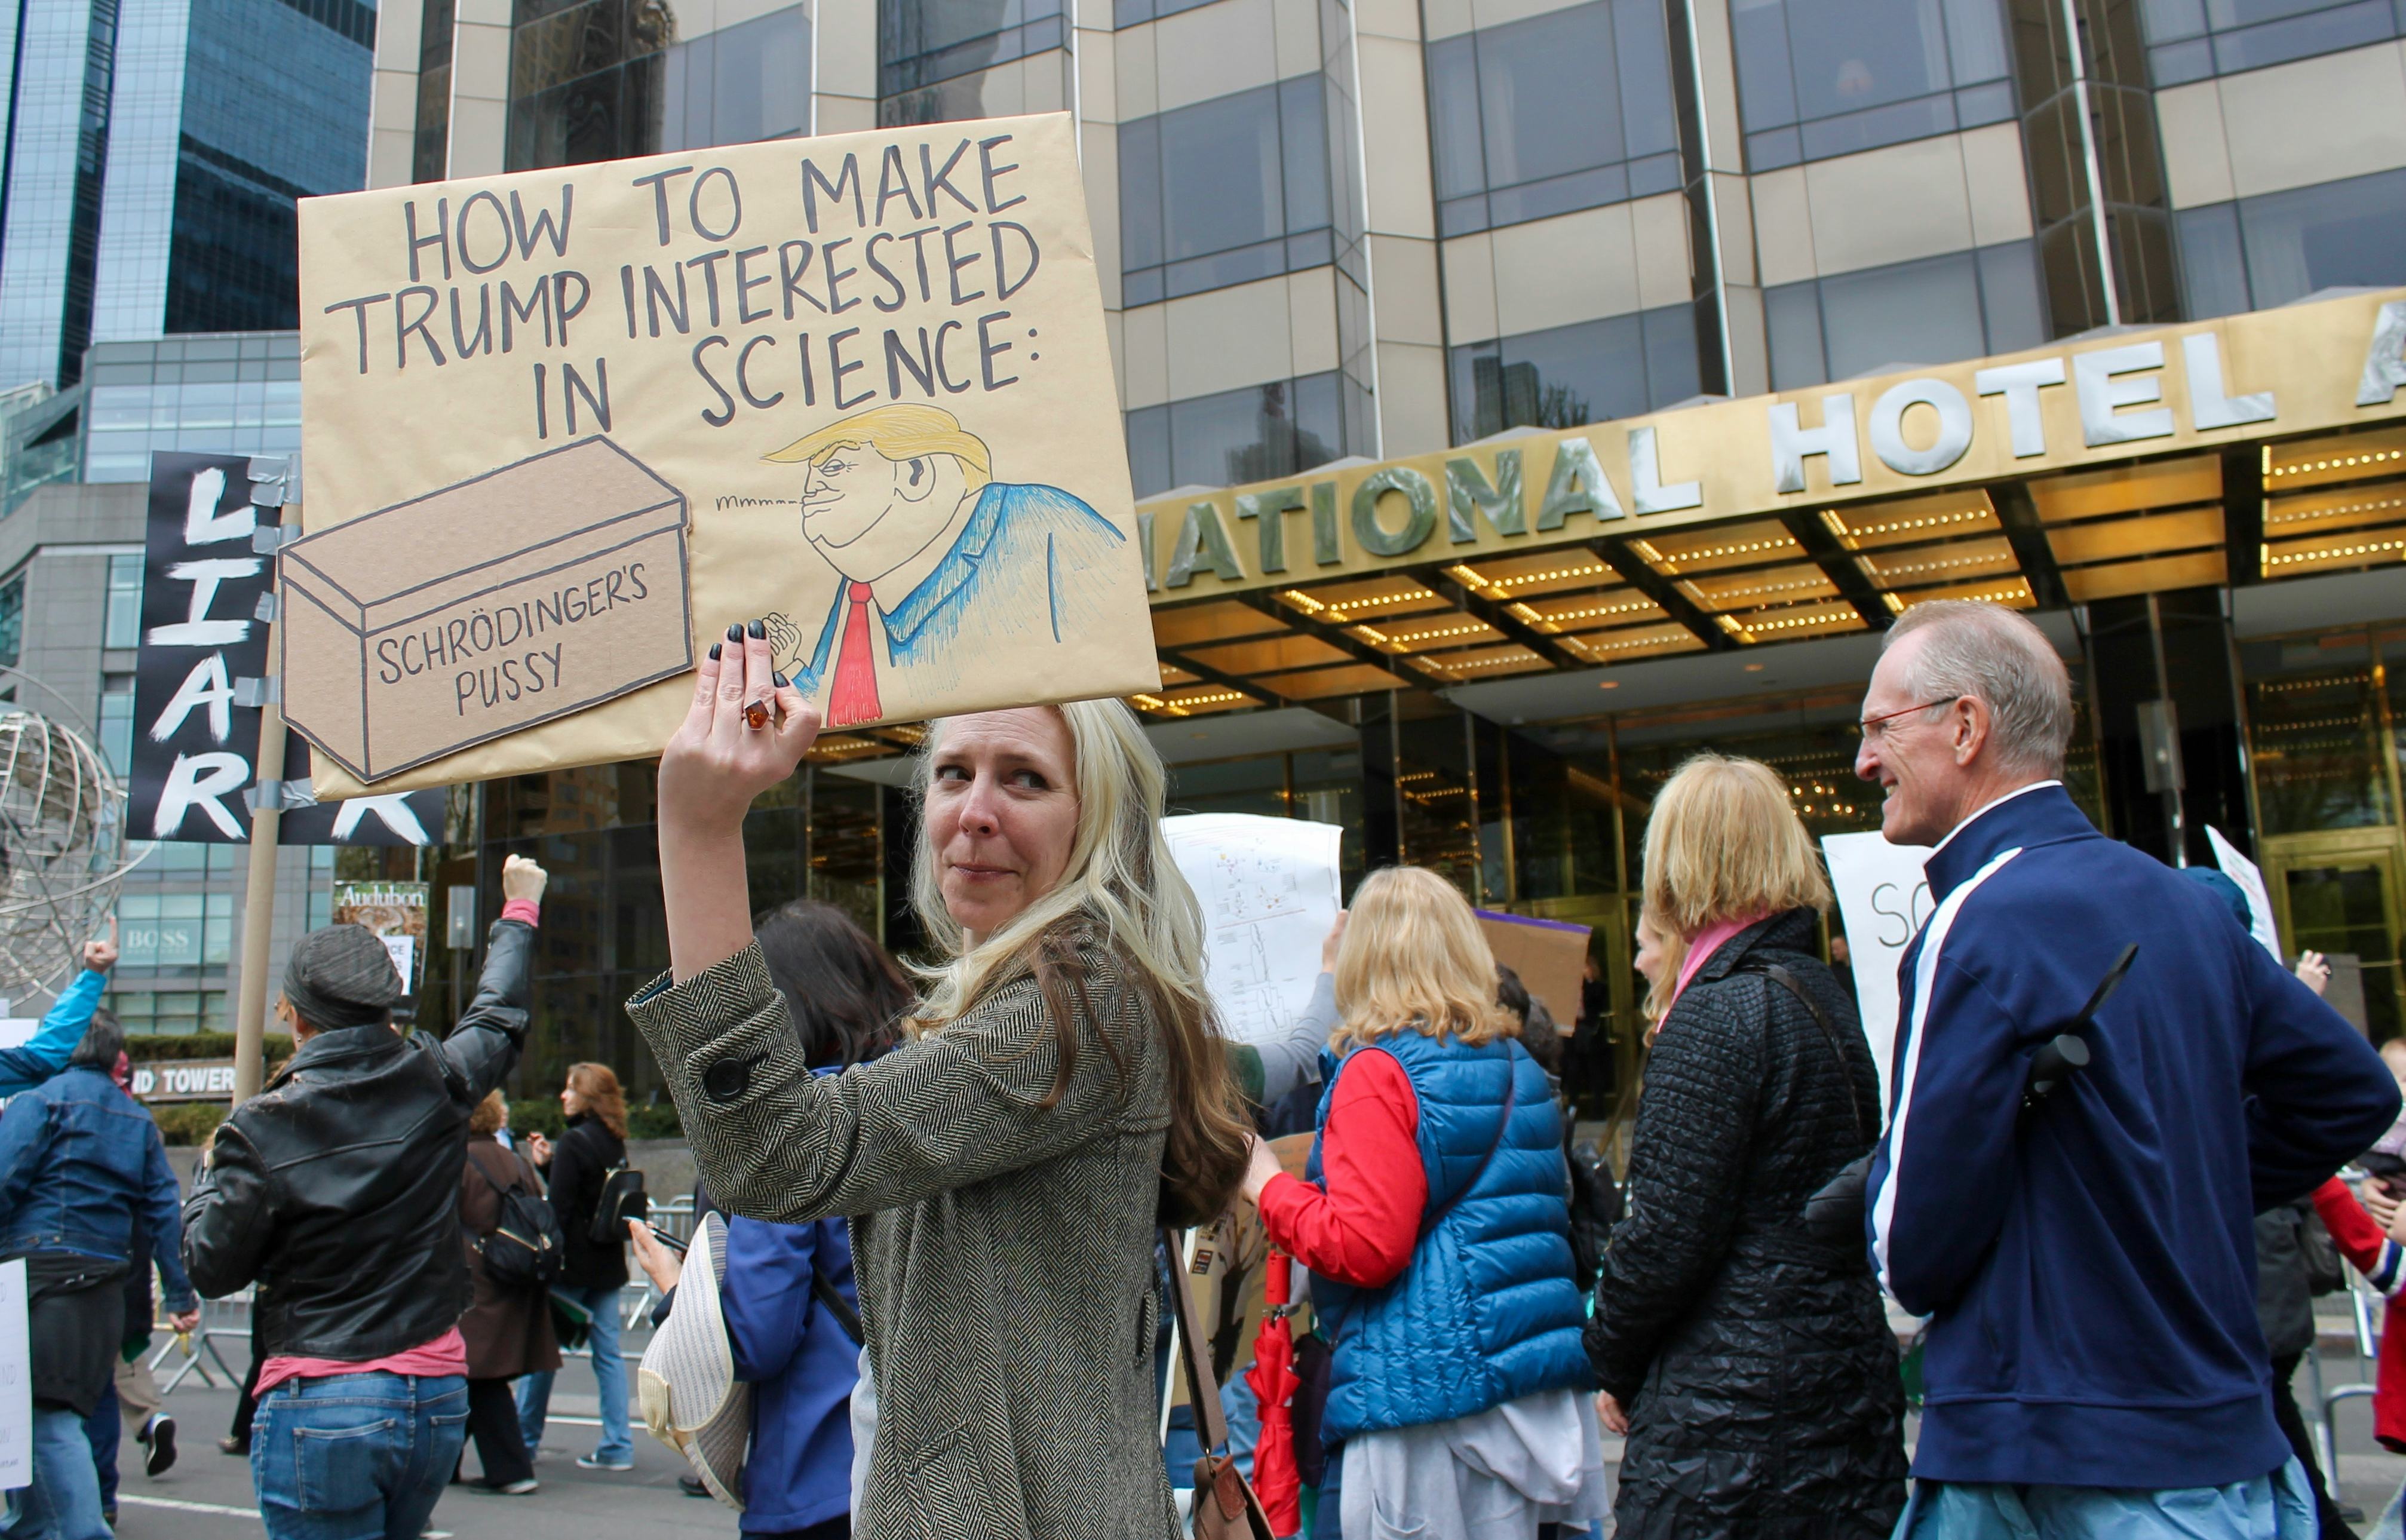 HOW TO MAKE
TRUMP INTERESTED
IN SCIENCE:
mmmmm
SCHRÖDINGER'S
PUSSY
L
I
A
R
NATIONAL HOTEL
Audubon
BOSS
ND TOWER
SC